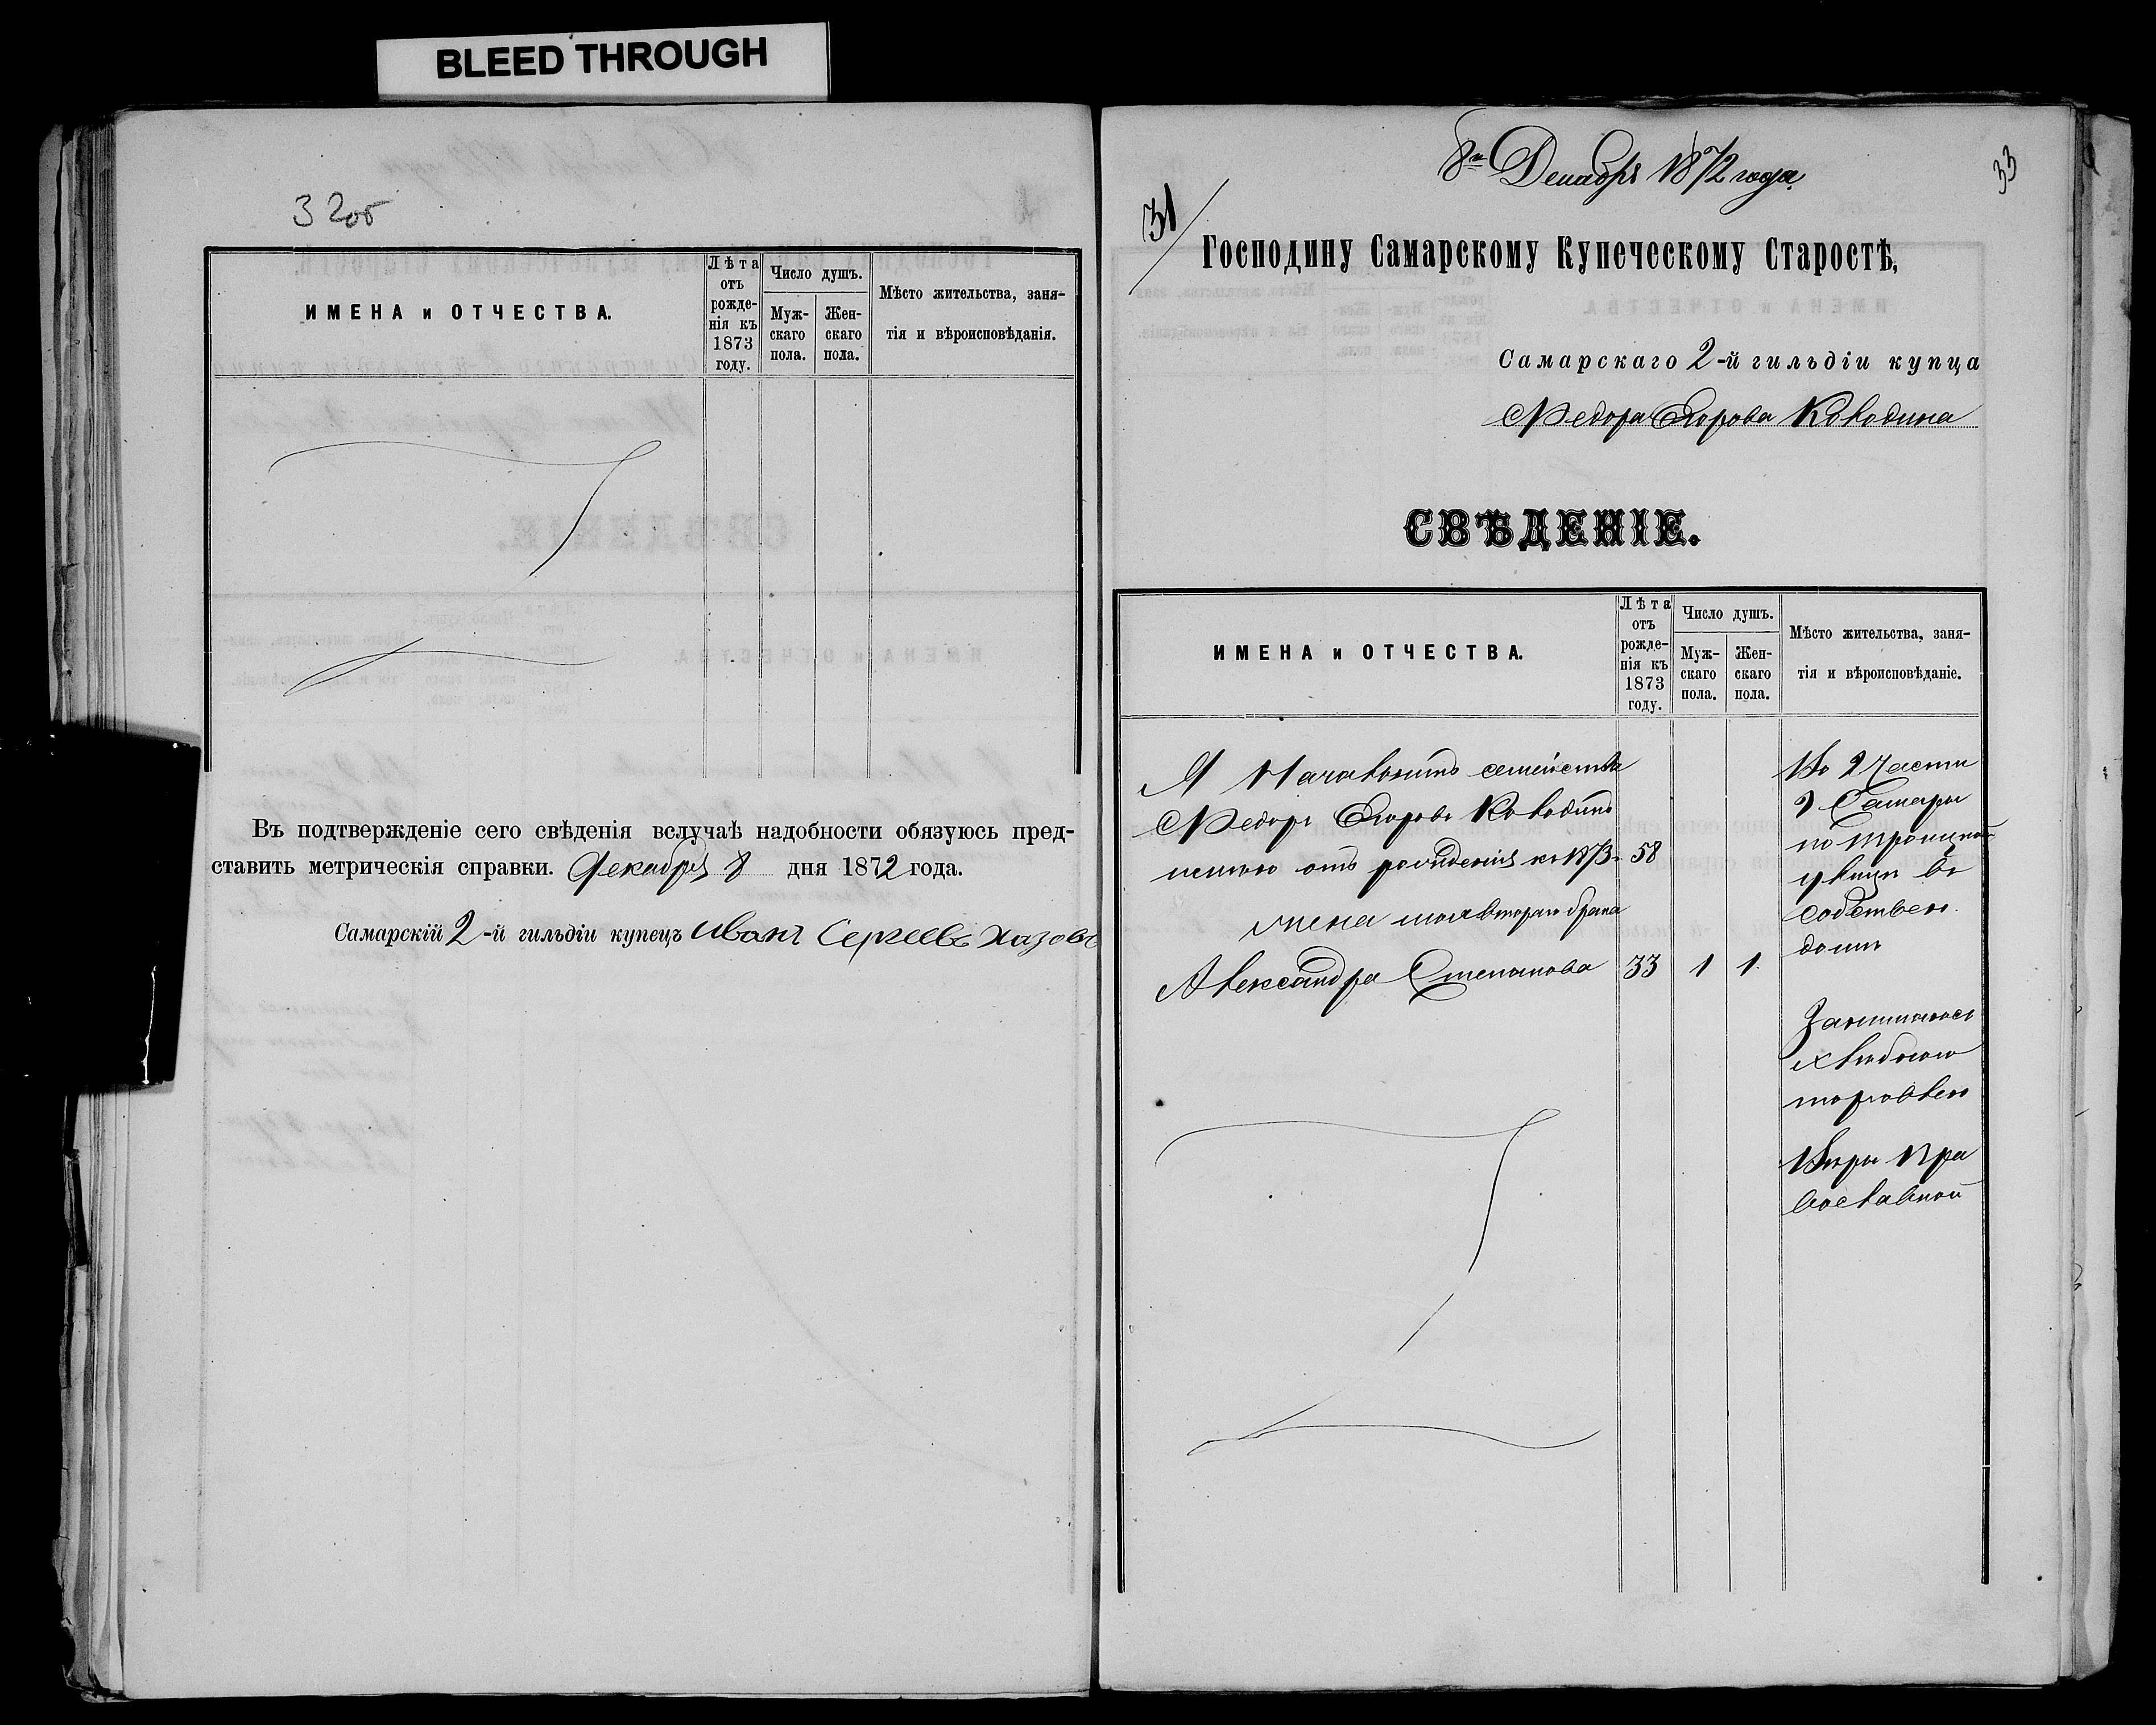 BLEED THROUGH
32об
ИМЕНА и ОТЧЕСТВА.
Лѣта отъ рожденія къ 1873 году.
Число душъ.
Мужскаго пола.
Женскаго пола.
Мѣсто жительства, занятія и вѣроисповѣданія.
Въ подтвержденіе сего свѣденія вслучаѣ надобности обязуюсь пред-
ставить метрическія справки. Декабря 8 дня 1872 года.
Самарскій 2-й гильдіи купецъ Иванъ Сергеевъ Хазовъ
8го Декабря 1872 года.
33
31
Господину Самарскому Купеческому Старостѣ,
Самарскаго 2-й гильдіи купца
Федора Егорова Колодина
СВѢДЕНІЕ.
ИМЕНА и ОТЧЕСТВА.
Лѣта отъ рожденія къ 1873 году.
Число душъ.
Мужскаго пола.
Женскаго пола.
Мѣсто жительства, занятія и вѣроисповѣданіе.
Я Началникъ семейства
Федоръ Егоровъ Колодинъ
отъ рожденія къ 1873 58
жена моя втораго брака
Александра Степанова 33 1 1
Во 2 части
г Самары
по Троицкой
улицѣ въ
собствен.
домѣ
Занимаюсь
хлѣбною
торговлею
Вѣры Пра
вославной